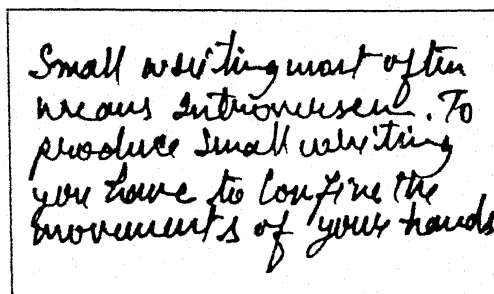 Small writing most often
means introversen. To
produce small writing
you have to confine the
movements of your hands